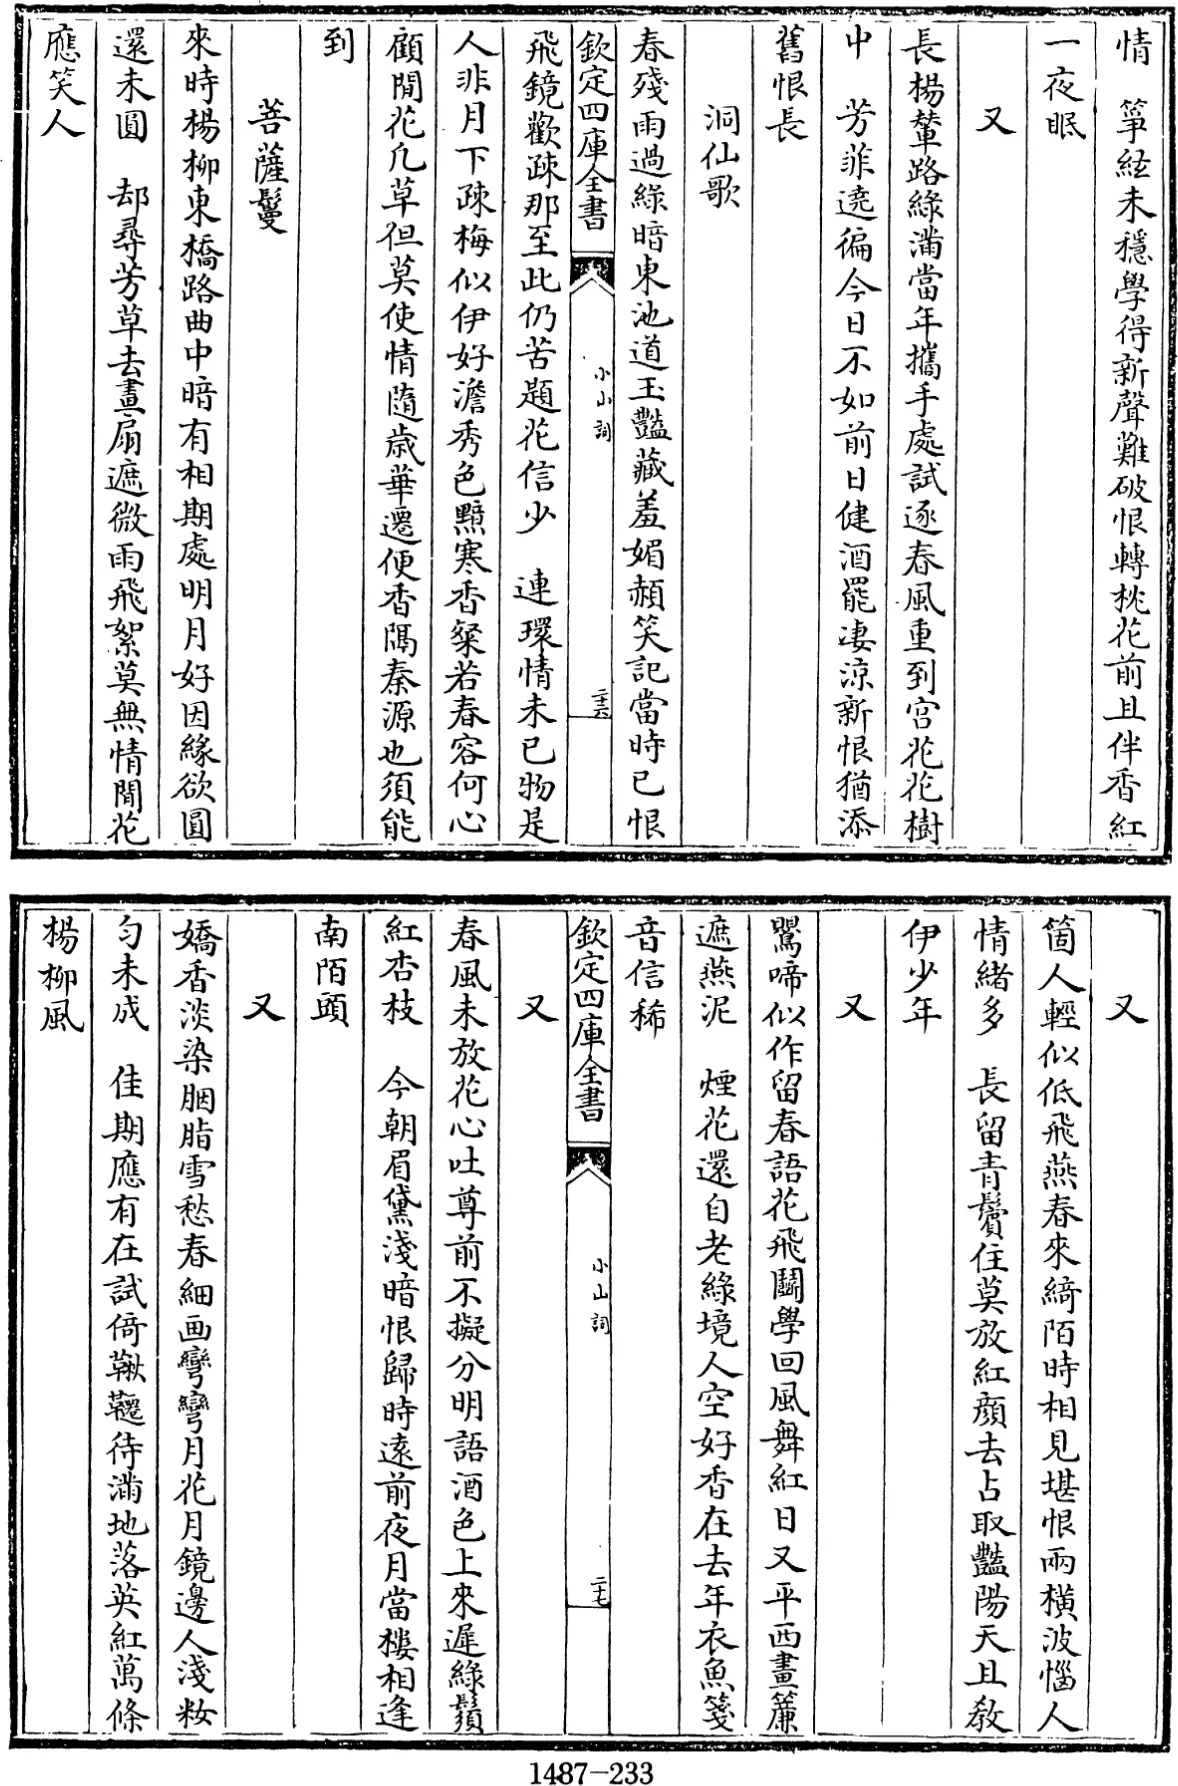 情　箏絃未穩學得新聲難破恨轉枕花前且伴香紅
一夜眠
又
長楊輦路綠滿當年攜手處試逐春風重到宮花花樹
中　芳菲遶徧今日不如前日健酒罷淒涼新恨猶添
舊恨長
洞仙歌
春殘雨過綠暗東池道玉豔藏羞媚赬笑記當時已恨
欽定四庫全書
小山詞
二十六
飛鏡歡疎那至此仍苦題花信少　連環情未已物是
人非月下疎梅似伊好澹秀色黯寒香粲若春容何心
顧閒花凡草但莫使情隨歲華遷便杳隔秦源也須能
到
菩薩鬘
來時楊柳東橋路曲中暗有相期處明月好因緣欲圓
還未圓　却尋芳草去畫扇遮微雨飛絮莫無情閒花
應笑人
又
箇人輕似低飛燕春來綺陌時相見堪恨兩橫波惱人
情緒多　長留青鬢住莫放紅顏去占取豔陽天且敎
伊少年
又
鸎啼似作留春語花飛鬭學回風舞紅日又平西畫簾
遮燕泥　煙花還自老綠境人空好香在去年衣魚箋
音信稀
欽定四庫全書
小山詞
二十七
又
春風未放花心吐尊前不擬分明語酒色上來遲綠鬚
紅杏枝　今朝眉黛淺暗恨歸時遠前夜月當樓相逢
南陌頭
又
嬌香淡染胭脂雪愁春細画彎彎月花月鏡邊人淺粧
匀未成　佳期應有在試倚鞦韆待滿地落英紅萬條
楊柳風
1487-233